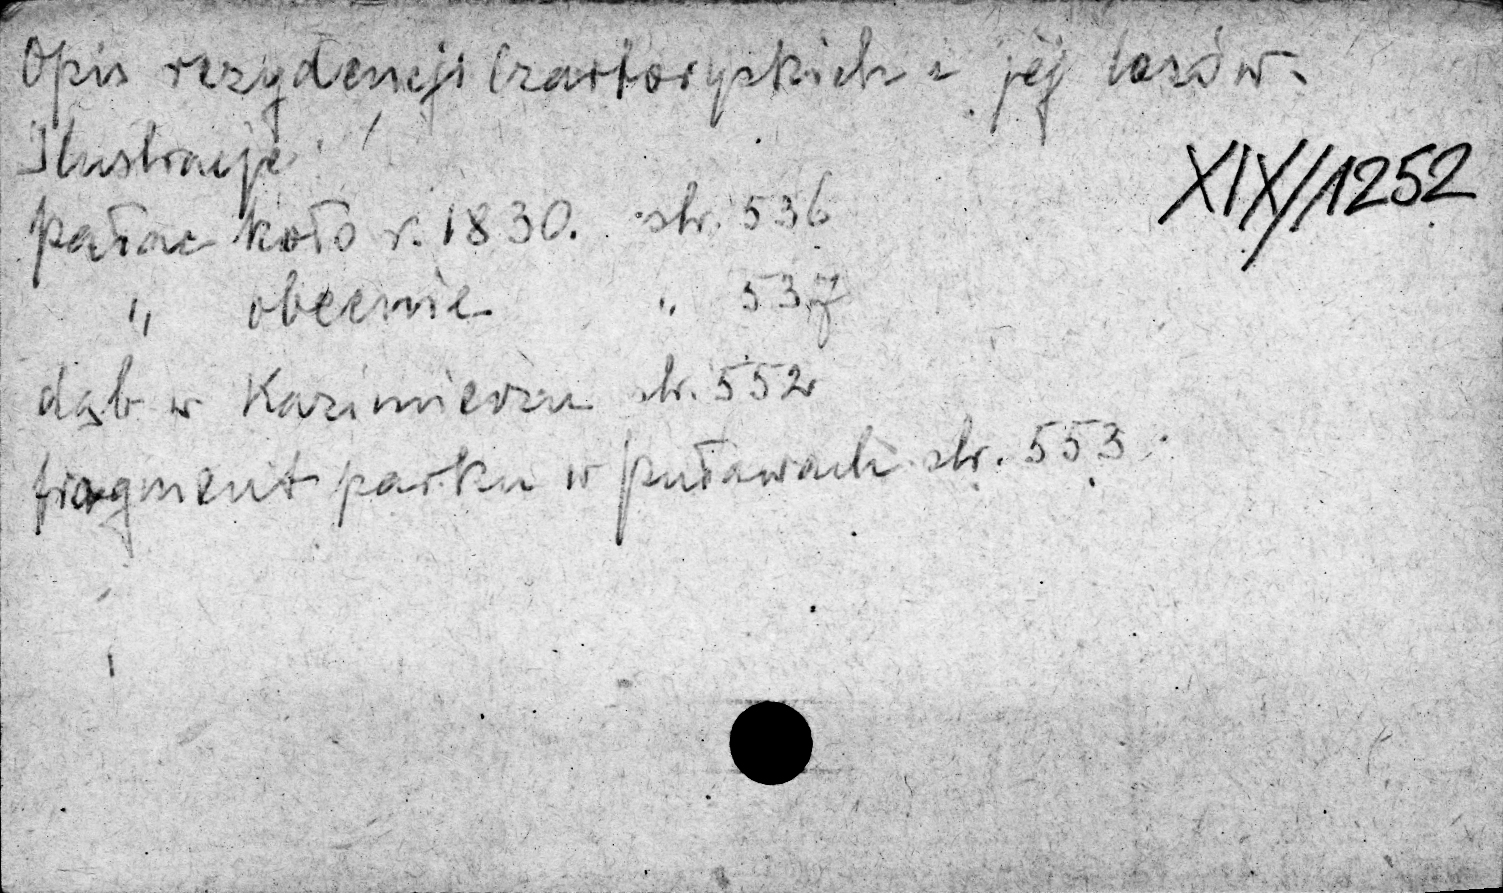 Opis rezydencji Czartoryskich i jej losów.
Ilustracje:
XIX/1252
pałac koło r. 1830. str. 536
" obecnie " 537
dąb w Kazimierzu str. 552
fragment parku w Puławach str. 553.